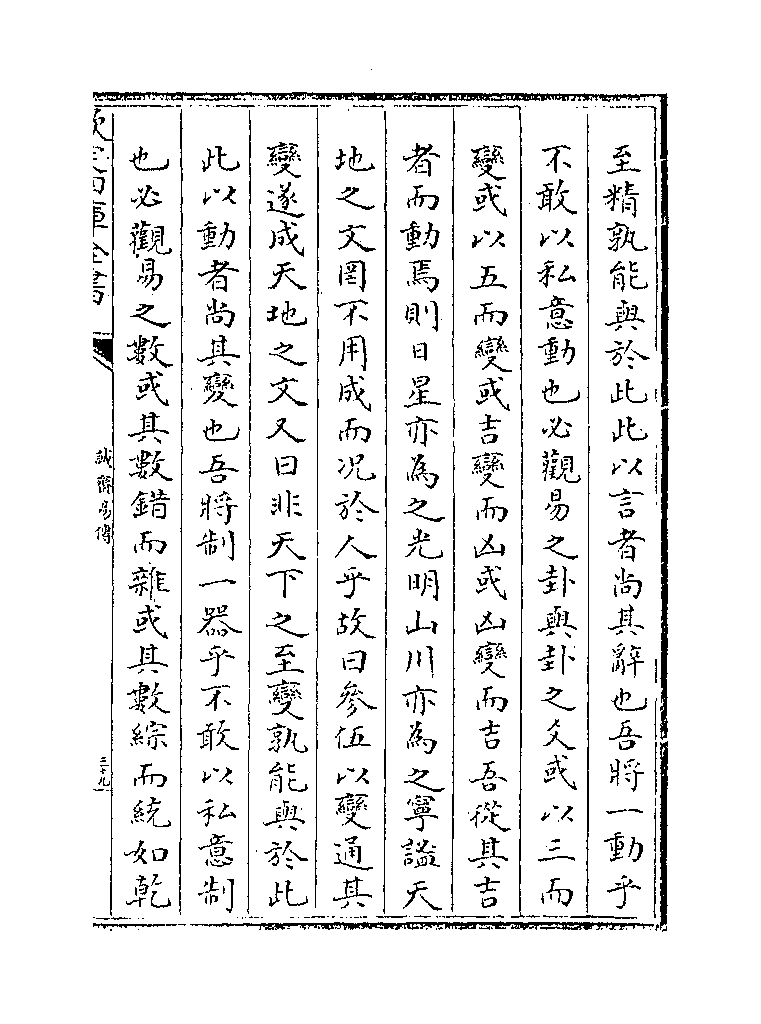 至精孰能與於此此以言者尚其辭也吾將一動乎
不敢以私意動也必觀易之卦與卦之爻或以三而
變或以五而變或吉變而凶或凶變而吉吾從其吉
者而動焉則日星亦為之光明山川亦為之寧謐天
地之文罔不用成而况於人乎故曰參伍以變通其
變遂成天地之文又曰非天下之至變孰能與於此
此以動者尚其變也吾將制一器乎不敢以私意制
也必觀易之數或其數錯而雜或其數綜而統如乾
欽定四庫全書
誠齋易傳
三十九